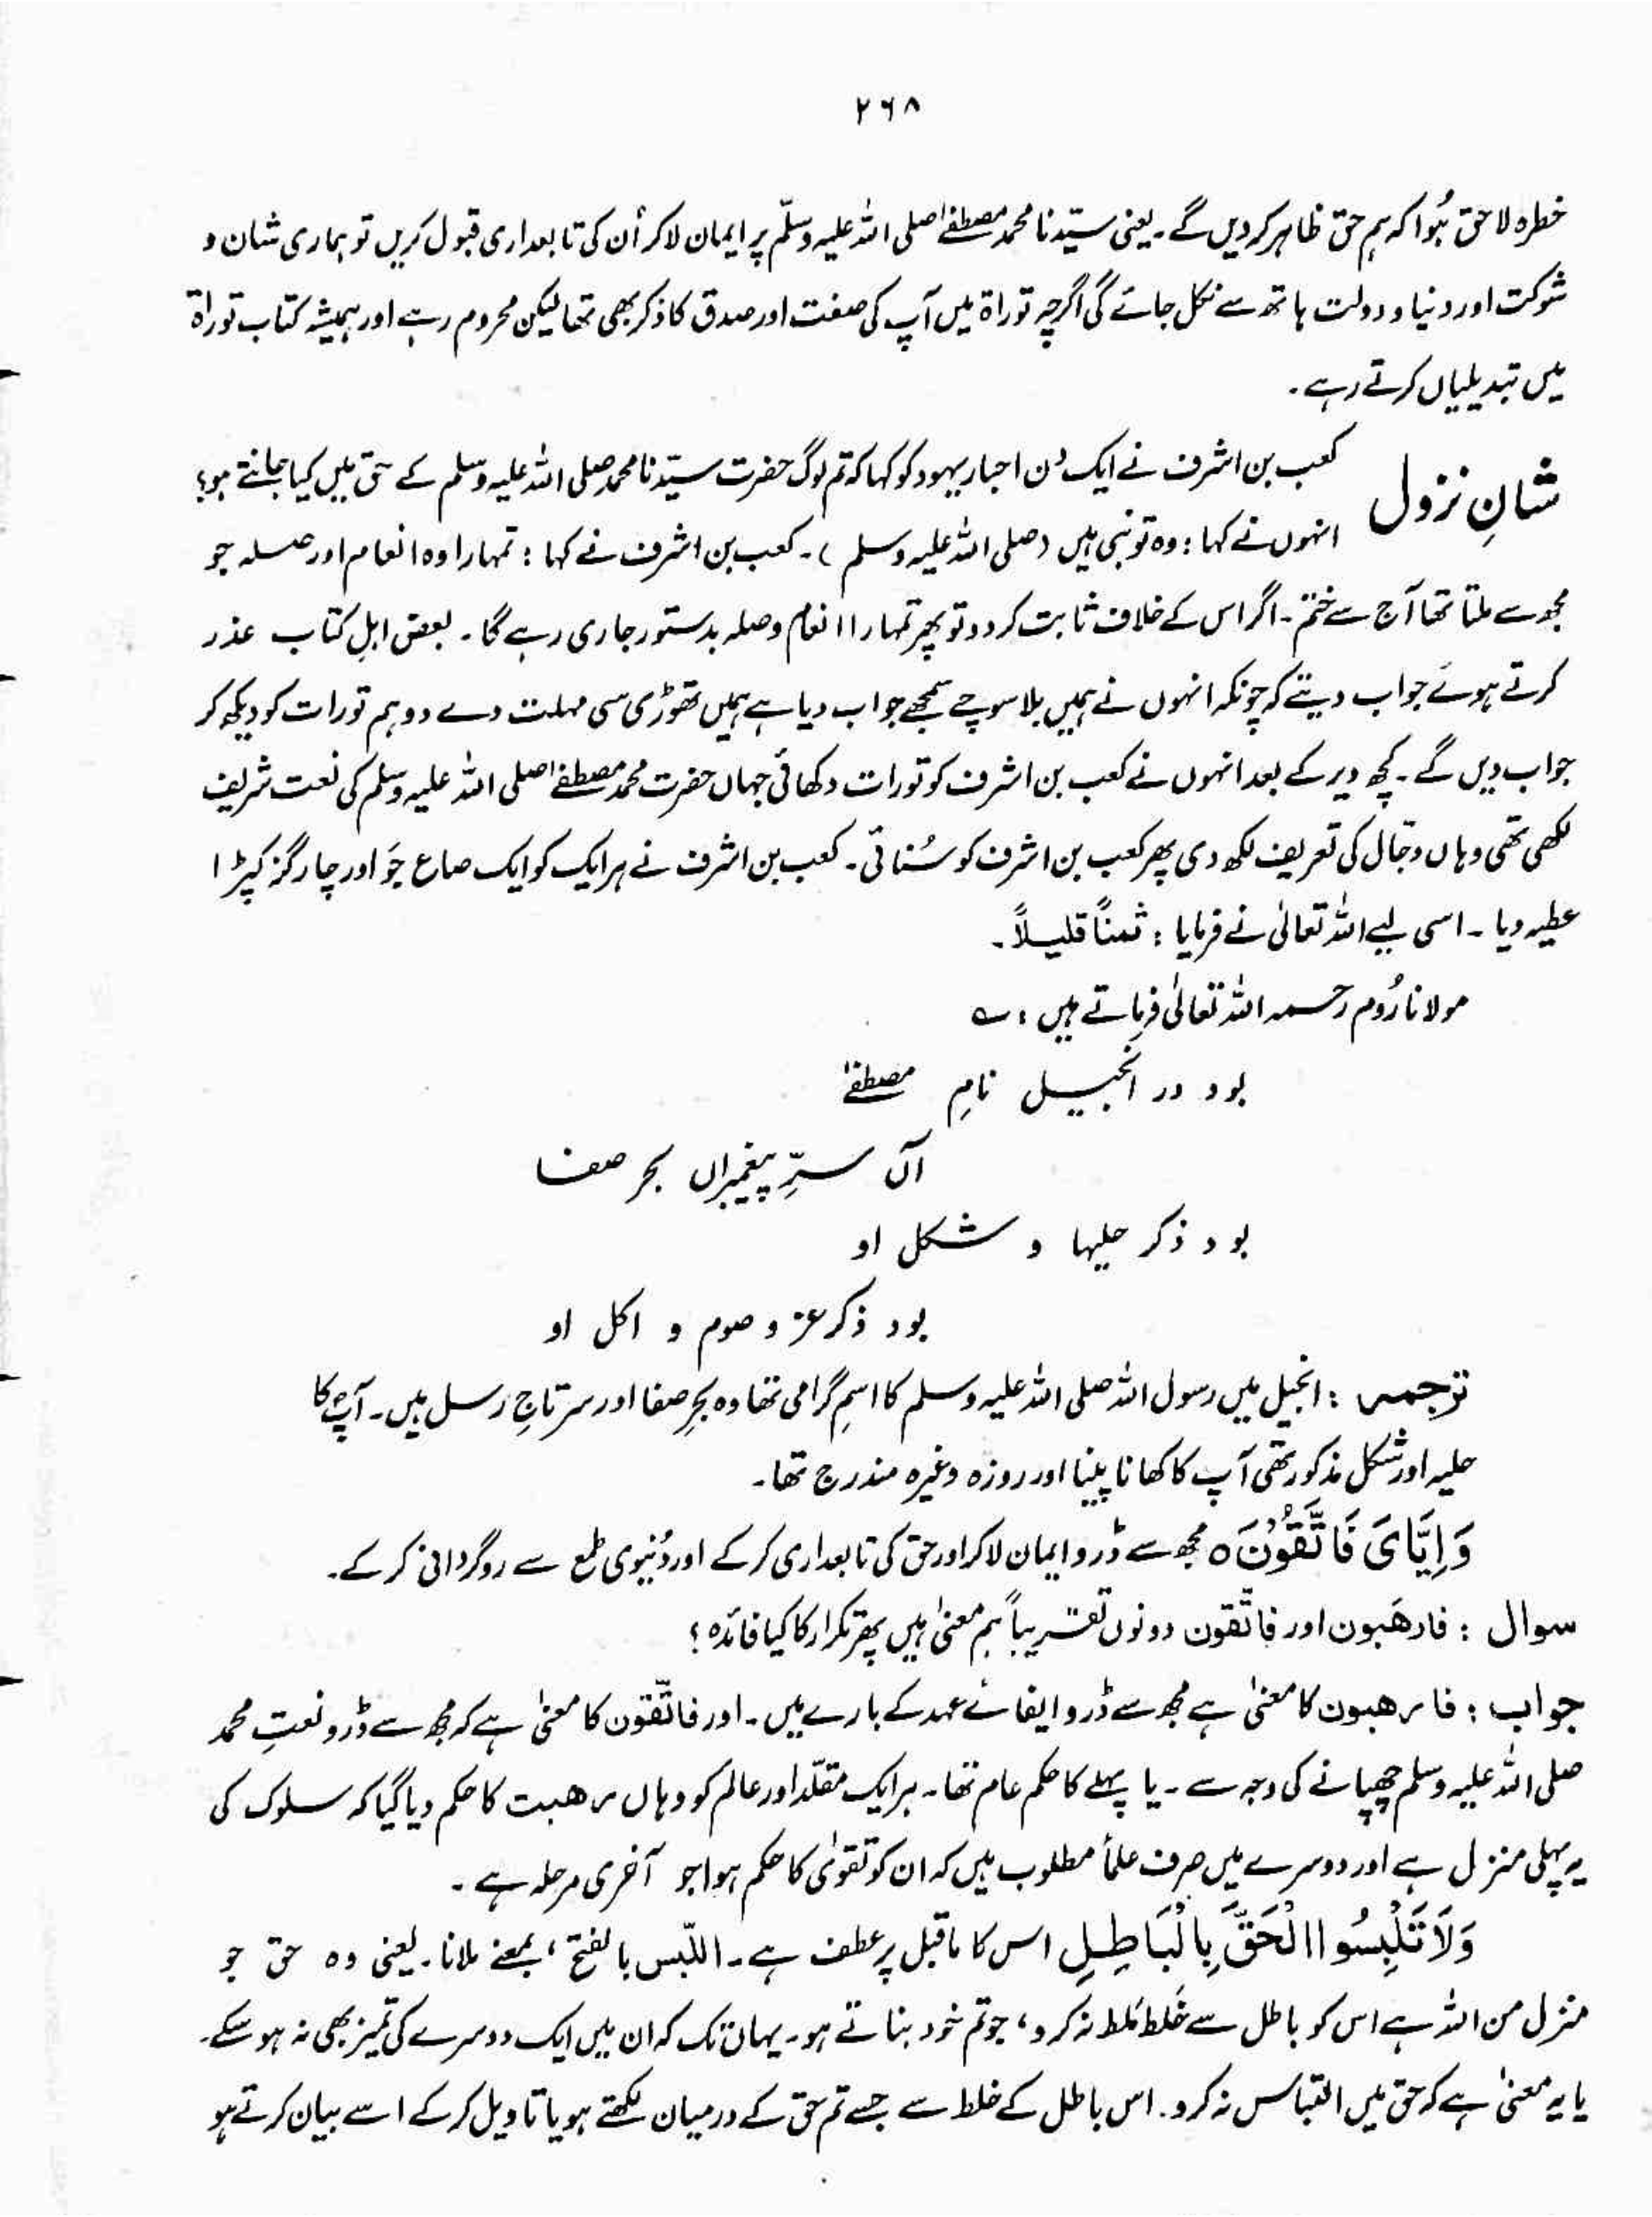 ۲۶۸
خطرہ لاحق ہُوا کہ ہم حق ظاہر کر دیں گے۔ یعنی سیّدنا محمد مصطفےٰ صلی اللہ علیہ وسلّم پر ایمان لا کر اُن کی تابعداری قبول کریں تو ہماری شان و
شوکت اور دنیا و دولت ہاتھ سے نکل جائے گی اگرچہ توراۃ میں آپ کی صفت اور صدق کا ذکر بھی تھا لیکن محروم رہے اور ہمیشہ کتاب توراۃ
میں تبدیلیاں کرتے رہے۔
شانِ نزول کعب بن اشرف نے ایک دن احبار یہود کو کہا کہ تم لوگ حضرت سیّدنا محمد صلی اللہ علیہ وسلم کے حق میں کیا جانتے ہو؟
انہوں نے کہا : وہ تو نبی ہیں (صلی اللہ علیہ وسلم)۔ کعب بن اشرف نے کہا : تمہارا وہ انعام اور صلہ جو
مجھ سے ملتا تھا آج سے ختم۔ اگر اس کے خلاف ثابت کر دو تو پھر تمہارا انعام وصلہ بدستور جاری رہے گا۔ بعض اہلِ کتاب عذر
کرتے ہوئے جواب دیتے کہ چونکہ انہوں نے ہمیں بلا سوچے سمجھے جواب دیا ہے ہمیں تھوڑی سی مہلت دے دو ہم تورات کو دیکھ کر
جواب دیں گے۔ کچھ دیر کے بعد انہوں نے کعب بن اشرف کو تورات دکھائی جہاں حضرت محمد مصطفےٰ صلی اللہ علیہ وسلم کی نعت شریف
لکھی تھی وہاں دجّال کی تعریف لکھ دی پھر کعب بن اشرف کو سُنائی۔ کعب بن اشرف نے ہر ایک کو ایک صاع جَو اور چار گز کپڑا
عطیہ دیا۔ اسی لیے اللہ تعالیٰ نے فرمایا : ثمناً قلیلاً۔
مولانا رُوم رحمہ اللہ تعالیٰ فرماتے ہیں : ؎
بود در انجیل نامِ مصطفےٰ
آں سرِّ پیغمبراں بحر صفا
بود ذکر حلیہا و شکل او
بود ذکر عز و صوم و اکل او
ترجمہ : انجیل میں رسول اللہ صلی اللہ علیہ وسلم کا اسمِ گرامی تھا وہ بحرِ صفا اور سرتاجِ رسل ہیں۔ آپؐ کا
حلیہ اور شکل مذکور تھی آپ کا کھانا پینا اور روزہ وغیرہ مندرج تھا۔
وَ اِیَّایَ فَاتَّقُوْنَ ہ مجھ سے ڈرو ایمان لا کر اور حق کی تابعداری کر کے اور دُنیوی طمع سے روگردانی کر کے۔
سوال : فارھَبون اور فاتَّقون دونوں تقریباً ہم معنیٰ ہیں پھر تکرار کا کیا فائدہ؟
جواب : فارھبون کا معنیٰ ہے مجھ سے ڈرو ایفائے عہد کے بارے میں۔ اور فاتّقون کا معنیٰ ہے کہ مجھ سے ڈرو نعتِ محمد
صلی اللہ علیہ وسلم چھپانے کی وجہ سے۔ یا پہلے کا حکم عام تھا۔ ہر ایک مقلّد اور عالم کو وہاں رھبت کا حکم دیا گیا کہ سلوک کی
یہ پہلی منزل ہے اور دوسرے میں صرف علماُ مطلوب ہیں کہ ان کو تقویٰ کا حکم ہوا جو آخری مرحلہ ہے۔
وَلَا تَلْبِسُوا الْحَقَّ بِالْبَاطِلِ اس کا ماقبل پر عطف ہے۔ اللّبس بالفتح، بمعنے ملانا۔ یعنی وہ حق جو
منزل من اللہ ہے اس کو باطل سے خَلط مَلط نہ کرو، جو تم خود بناتے ہو۔ یہاں تک کہ ان میں ایک دوسرے کی تمیز بھی نہ ہو سکے۔
یا یہ معنیٰ ہے کہ حق میں التباس نہ کرو۔ اس باطل کے خلط سے جسے تم حق کے درمیان لکھتے ہو یا تاویل کر کے اسے بیان کرتے ہو